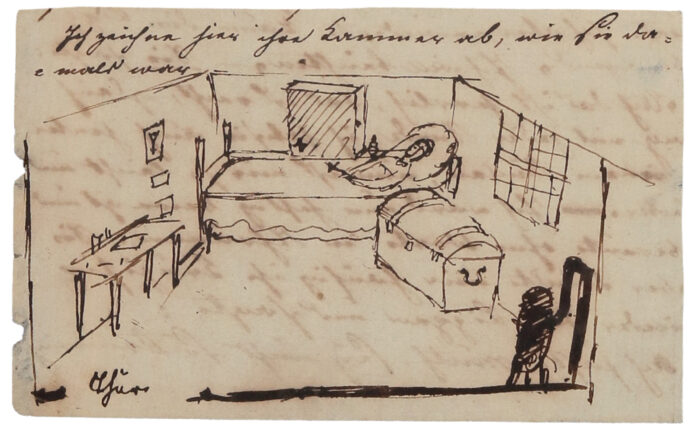 Ich zeichne hier ihre Kammer ab, wie sie da=
= mals war
Thür